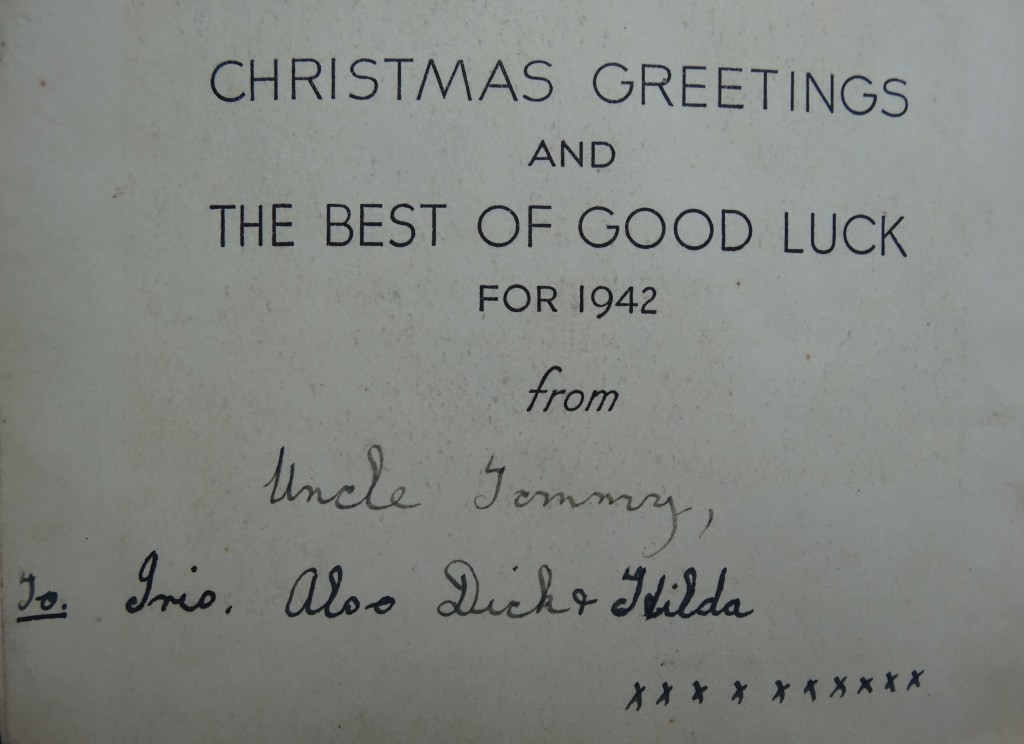 CHRISTMAS GREETINGS
AND
THE BEST OF GOOD LUCK
FOR 1942
from
Uncle Tommy,
To. Iris. Also Dick & Hilda
x x x x x x x x x x